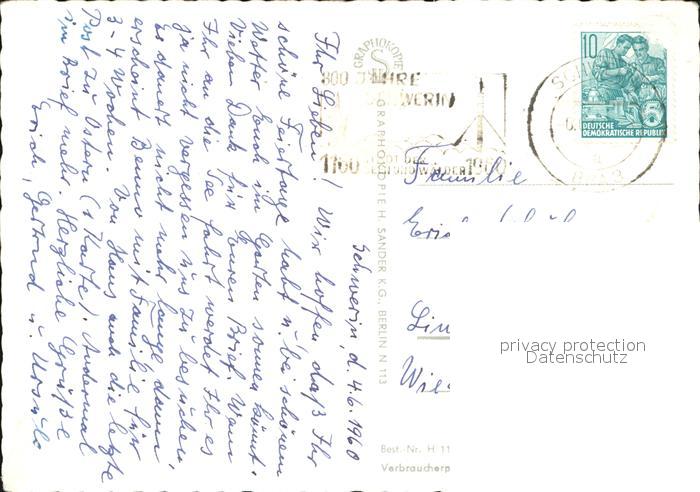 Schwerin, d. 4.6.1960
Ihr Lieben! Wir hoffen daß Ihr
schöne Feiertage habt u. bei schönem
Wetter Euch im Garten sonnen könnt.
Vielen Dank für Euren Brief. Wenn
Ihr an die See fahrt werdet Ihr es
ja nicht vergessen uns zu besuchen.
Es dauert nicht mehr lange dann
erscheint Benno mit Familie für
3-4 Wochen. Von Haus auch die letzte
Post zu Ostern (1 Karte). Andermal
im Brief mehr. Herzliche Grüße
Erich, Gertrud u. Ursula
GRAPHOKOPIE
GRAPHOKOPIE H. SANDER K.G., BERLIN N 113
800 JAHRE
SCHWERIN
1160
1960
10
DEUTSCHE
DEMOKRATISCHE REPUBLIK
Familie
Lin
privacy protection
Datenschutz
Best.-Nr. H 11
Verbraucherp